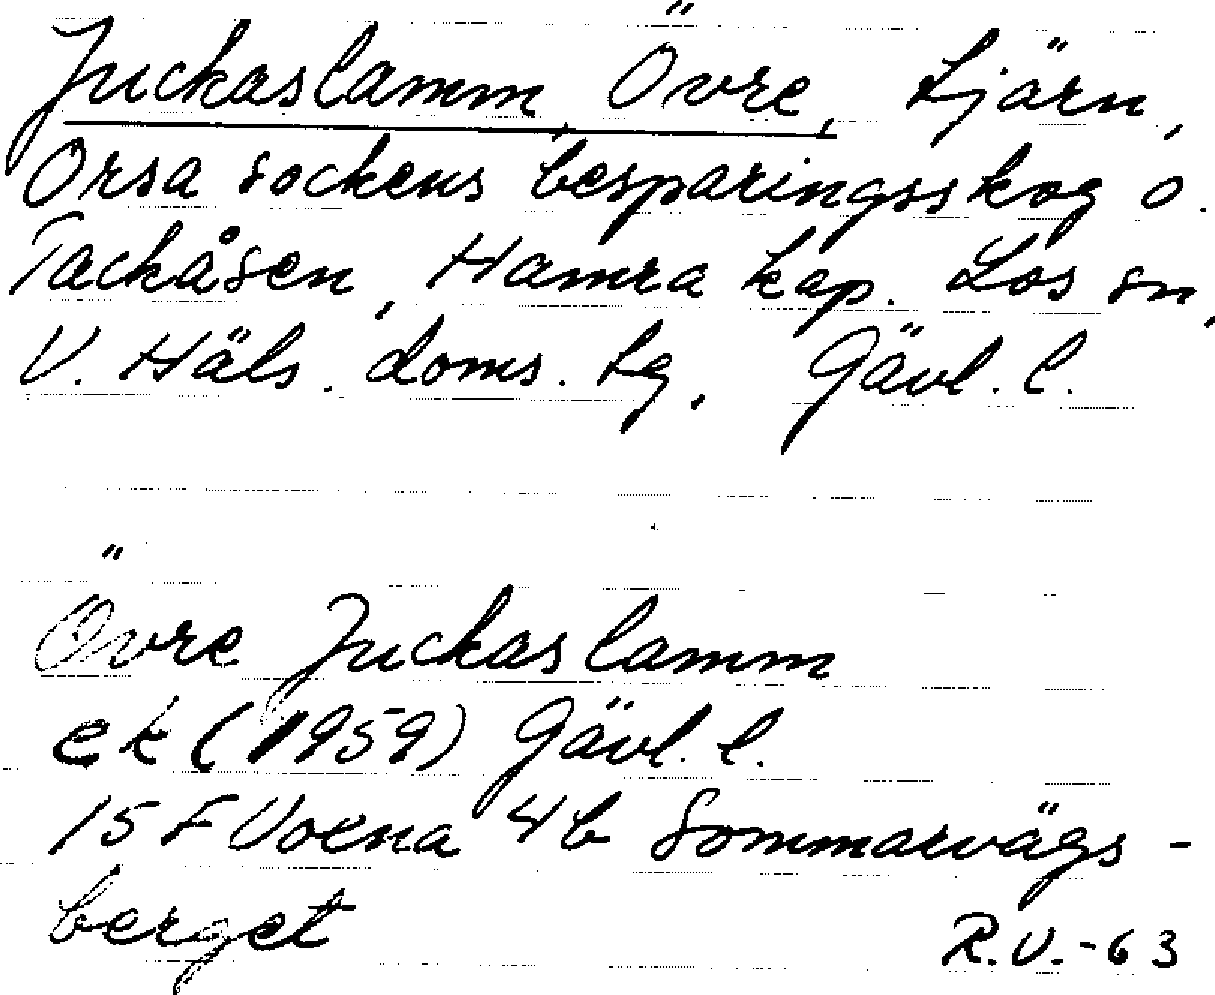 Juckaslamm, Övre, tjärn,
Orsa sockens besparingsskog o.
Tackåsen, Hamra kap. Los sn,
V. Häls. doms. tg. Gävl. l.
Övre Juckaslamm
ek (1959) Gävl. l.
15 F Voxna 4b Sommarvägs-
berget
R.V.-63